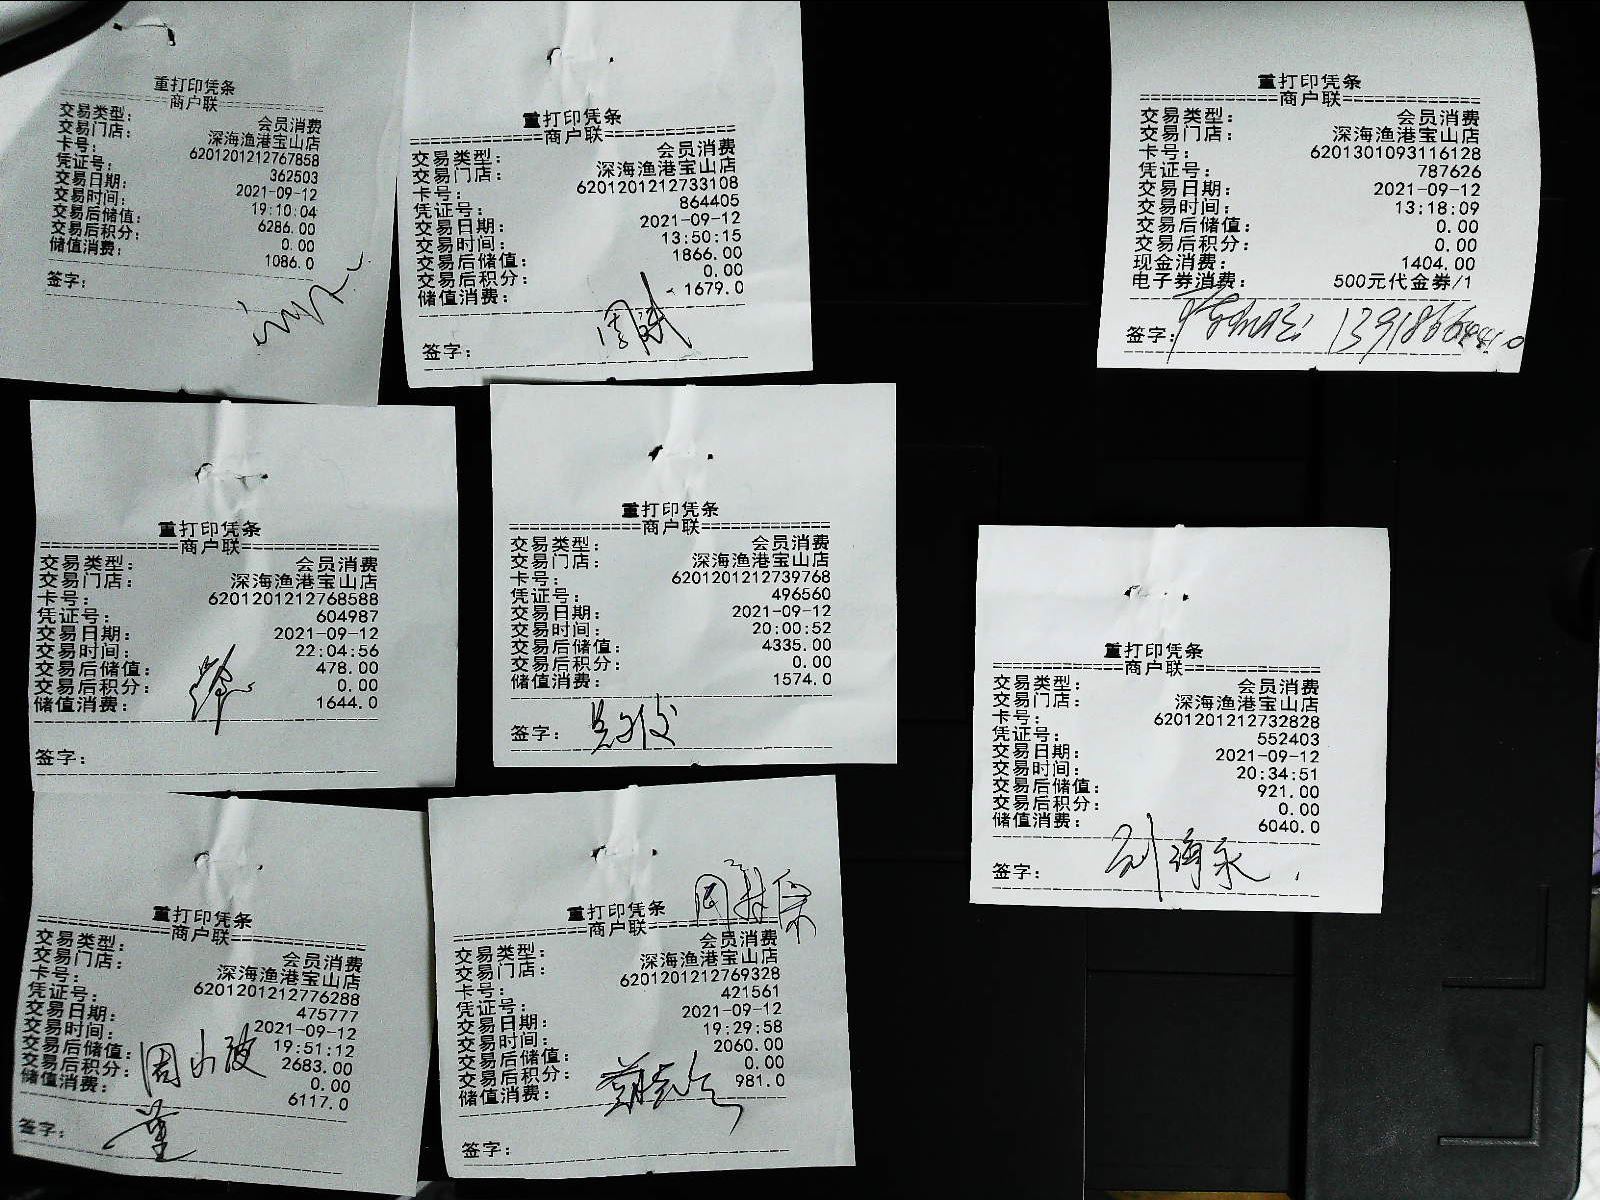 重打印凭条
================商户联================
交易类型： 会员消费
交易门店： 深海渔港宝山店
卡号： 6201201212767858
凭证号： 362503
交易日期： 2021-09-12
交易时间： 19:10:04
交易后储值： 6286.00
交易后积分： 0.00
储值消费： 1086.0
签字：
重打印凭条
================商户联================
交易类型： 会员消费
交易门店： 深海渔港宝山店
卡号： 6201201212733108
凭证号： 864405
交易日期： 2021-09-12
交易时间： 13:50:15
交易后储值： 1866.00
交易后积分： 0.00
储值消费： 1679.0
签字： 周斌
重打印凭条
================商户联================
交易类型： 会员消费
交易门店： 深海渔港宝山店
卡号： 6201301093116128
凭证号： 787626
交易日期： 2021-09-12
交易时间： 13:18:09
交易后储值： 0.00
交易后积分： 0.00
现金消费： 1404.00
电子券消费： 500元代金券/1
签字：
重打印凭条
================商户联================
交易类型： 会员消费
交易门店： 深海渔港宝山店
卡号： 6201201212768588
凭证号： 604987
交易日期： 2021-09-12
交易时间： 22:04:56
交易后储值： 478.00
交易后积分： 0.00
储值消费： 1644.0
签字：
重打印凭条
================商户联================
交易类型： 会员消费
交易门店： 深海渔港宝山店
卡号： 6201201212739768
凭证号： 496560
交易日期： 2021-09-12
交易时间： 20:00:52
交易后储值： 4335.00
交易后积分： 0.00
储值消费： 1574.0
签字：
重打印凭条
================商户联================
交易类型： 会员消费
交易门店： 深海渔港宝山店
卡号： 6201201212732828
凭证号： 552403
交易日期： 2021-09-12
交易时间： 20:34:51
交易后储值： 921.00
交易后积分： 0.00
储值消费： 6040.0
签字： 刘海永
重打印凭条
================商户联================
交易类型： 会员消费
交易门店： 深海渔港宝山店
卡号： 6201201212776288
凭证号： 475777
交易日期： 2021-09-12
交易时间： 19:51:12
交易后储值： 2683.00
交易后积分： 0.00
储值消费： 6117.0
周小波
签字： 董
重打印凭条
================商户联================
交易类型： 会员消费
交易门店： 深海渔港宝山店
卡号： 6201201212769328
凭证号： 421561
交易日期： 2021-09-12
交易时间： 19:29:58
交易后储值： 2060.00
交易后积分： 0.00
储值消费： 981.0
签字：